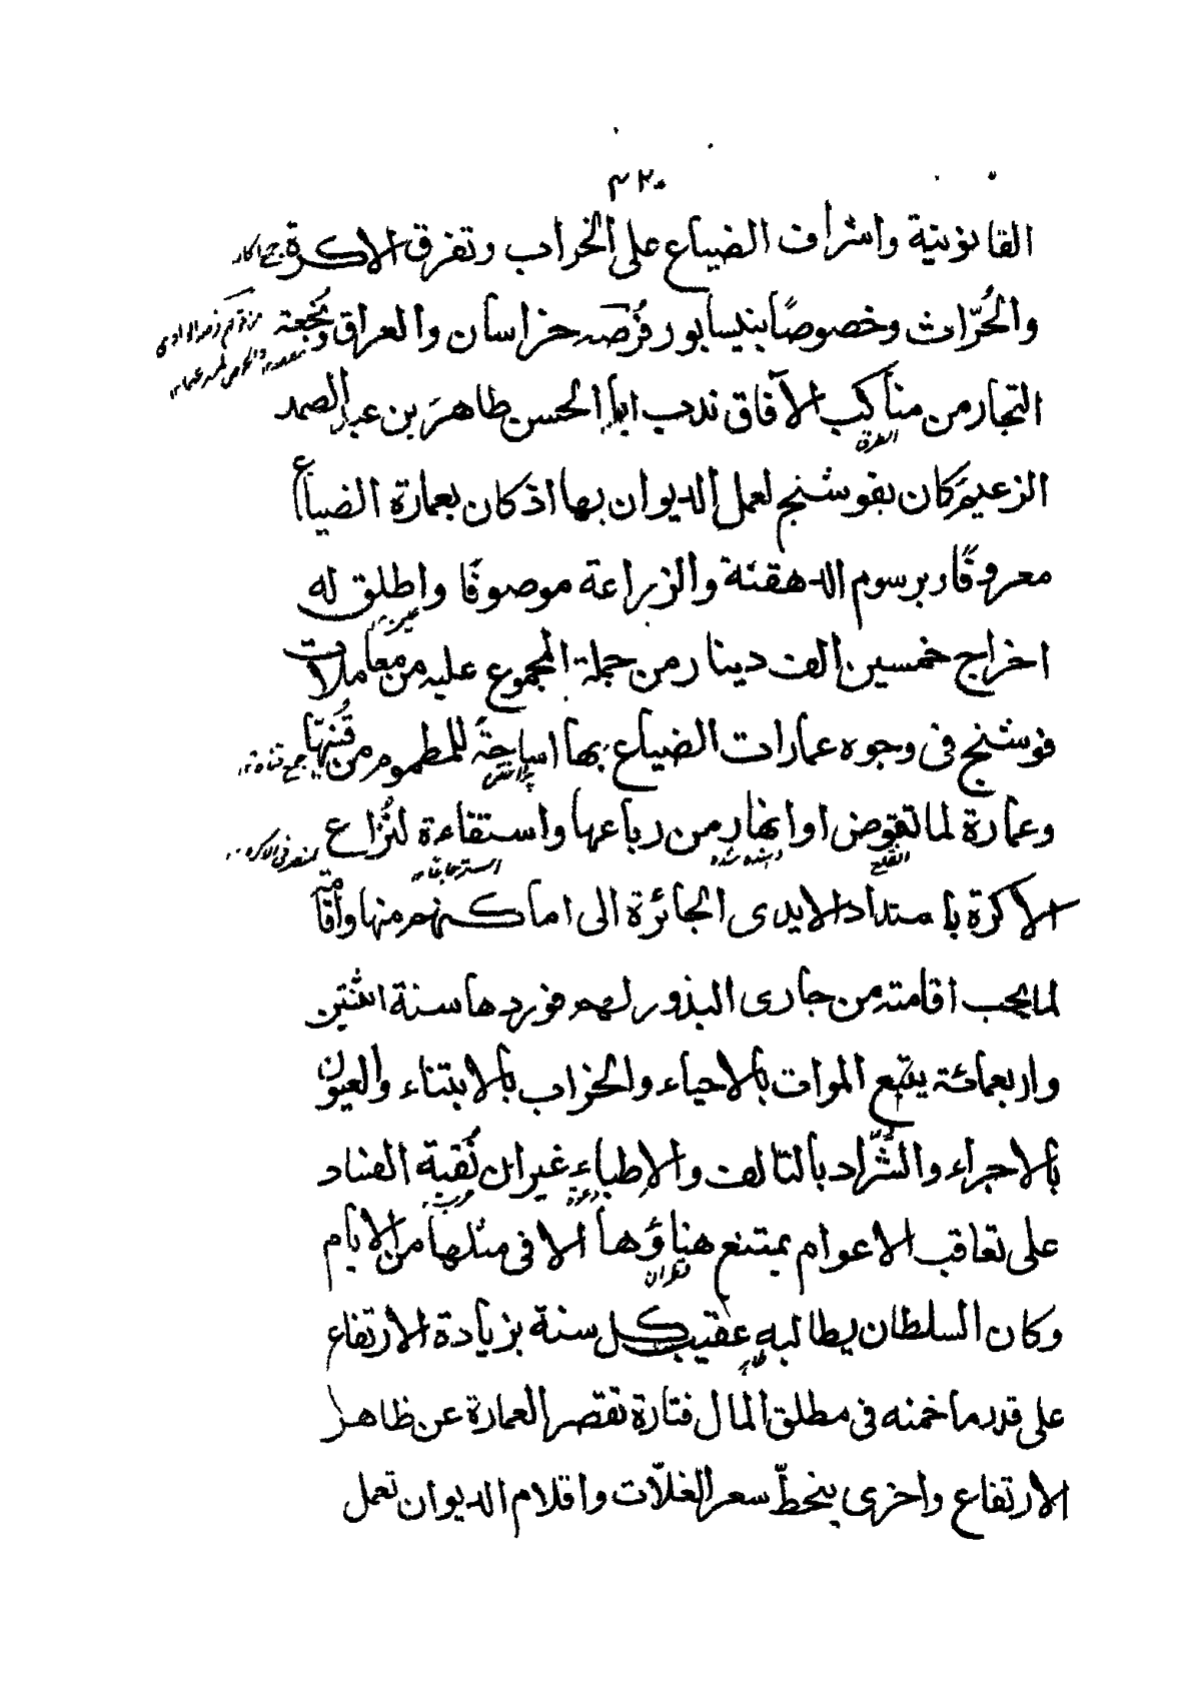 ٣٢٠
القانونية واشراف الضياع على الخراب وتفرق الاكرة جمع اكار
والحُرّاث وخصوصًا بنيسابور فُرْضه خراسان والعراق ونُجعة
التجار من مناكب الآفاق ندب ابا الحسن طاهرَ بن عبد الصمد
الطرق
الزعيم كان بفوشنج لعمل الديوان بها اذ كان بعمارة الضياع
معروفًا وبرسوم الدهقنة والزراعة موصوفًا واطلق له
اخراج خمسين الف دينار من جملة المجموع عليه من معاملات
فوشنج فى وجوه عمارات الضياع بها اساحةً للمطموم من قُنيّها جمع قناة
وعمارة لما تقوض او انهار من رباعها واستفاءة لنُزّاع
استرجاعا
الاكرة بامتداد الايدى الجائرة الى اماكنهم منها واقامة
لما يجب اقامته من جارى البذور لهم فوردها سنة اثنتين
واربعمائة يتبع الموات بالاحياء والخراب بالابتناء والعيون
بالاجراء والشُّرّاد بالتالف والإطباء غير ان نُقبة الفساد
على تعاقب الاعوام يمتنع هناؤها الا فى مثلها من الايام
قطران
وكان السلطان يطالبه عقيب كل سنة بزيادة الارتفاع
على قدر ما ضمنه فى مطلق المال فتارة تقصر العمارة عن ظاهر
الارتفاع واخرى ينحطّ سعر الغلّات واقلام الديوان تعمل